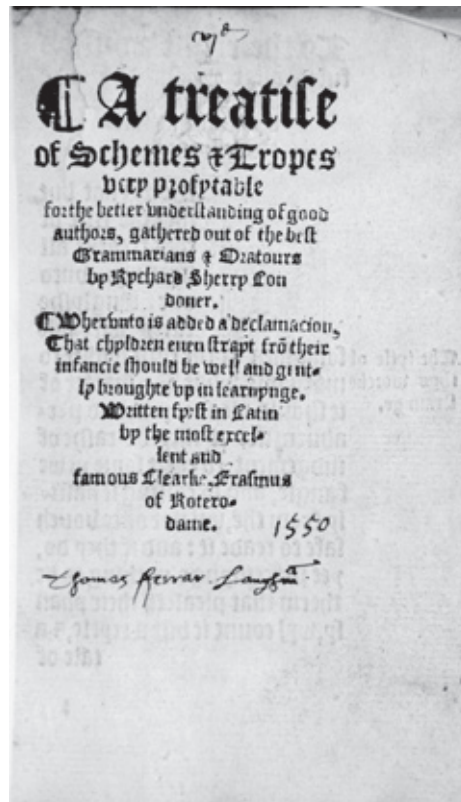 ¶ A treatise
of Schemes & Tropes
very profytable
for the better vnderstanding of good
authors, gathered out of the best
Grammarians & Oratours
by Rychard Sherry Lon
doner.
¶ Wherunto is added a declamacion,
That chyldren euen strapt frō their
infancie should be well and gent-
ly broughte vp in learnynge.
Written fyrst in Latin
by the most excel-
lent and
famous Clearke, Erasmus
of Rotero-
dame. 1550
Thomas